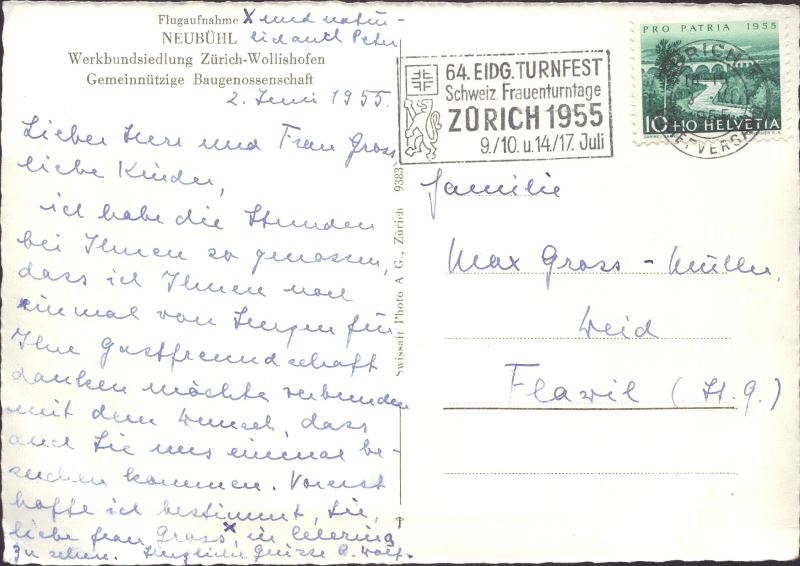 Flugaufnahme
NEUBÜHL
Werkbundsiedlung Zürich-Wollishofen
Gemeinnützige Baugenossenschaft
x und natür-
lich auch Peter
2. Juni 1955.
Lieber Herr und Frau Gross,
liebe Kinder,
ich habe die Stunden
bei Ihnen so genossen,
dass ich Ihnen noch
einmal von Herzen für
Ihre Gastfreundschaft
danken möchte verbunden
mit dem Wunsch, dass
auch Sie uns einmal be-
suchen kommen. Vorerst
hoffe ich bestimmt, Sie,
liebe Frau Gross x, in Celerina
zu sehen. Herzliche Grüsse
Swissair Photo A G., Zürich 9383
64. EIDG. TURNFEST
Schweiz. Frauenturntage
ZÜRICH 1955
9./10. u. 14./17. Juli
PRO PATRIA 1955
10+10 HELVETIA
ZÜRICH
BRIEFVERSAND
Familie
Max Gross - Müller,
Weid
Flawil (St. G.)